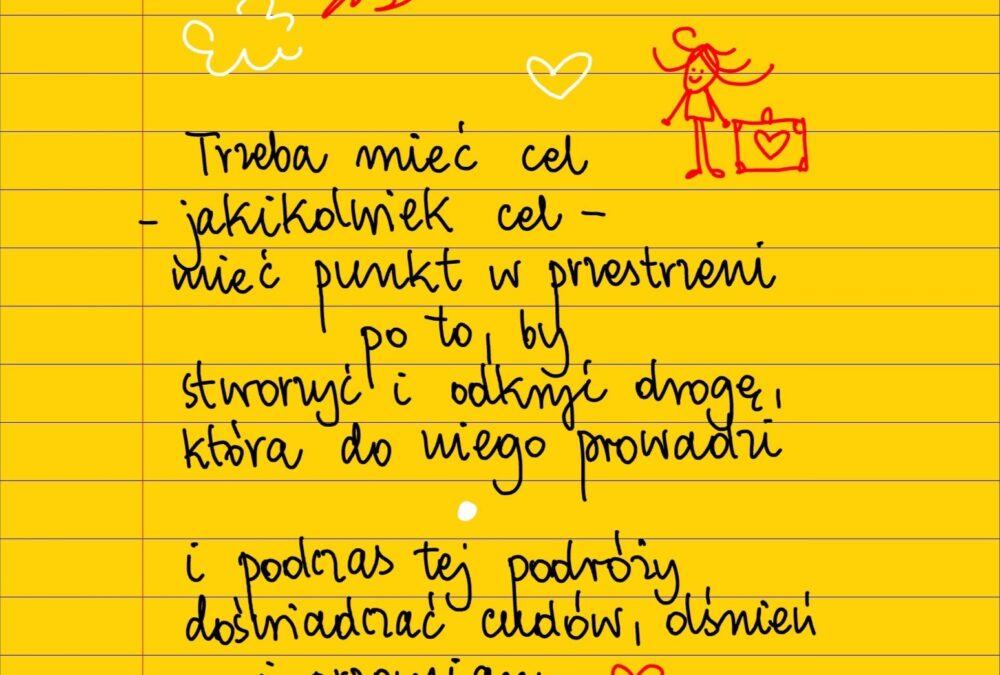 Trzeba mieć cel
- jakikolwiek cel -
mieć punkt w przestrzeni
po to, by
stworzyć i odkryć drogę,
która do niego prowadzi
i podczas tej podróży
doświadczać cudów, olśnień
i